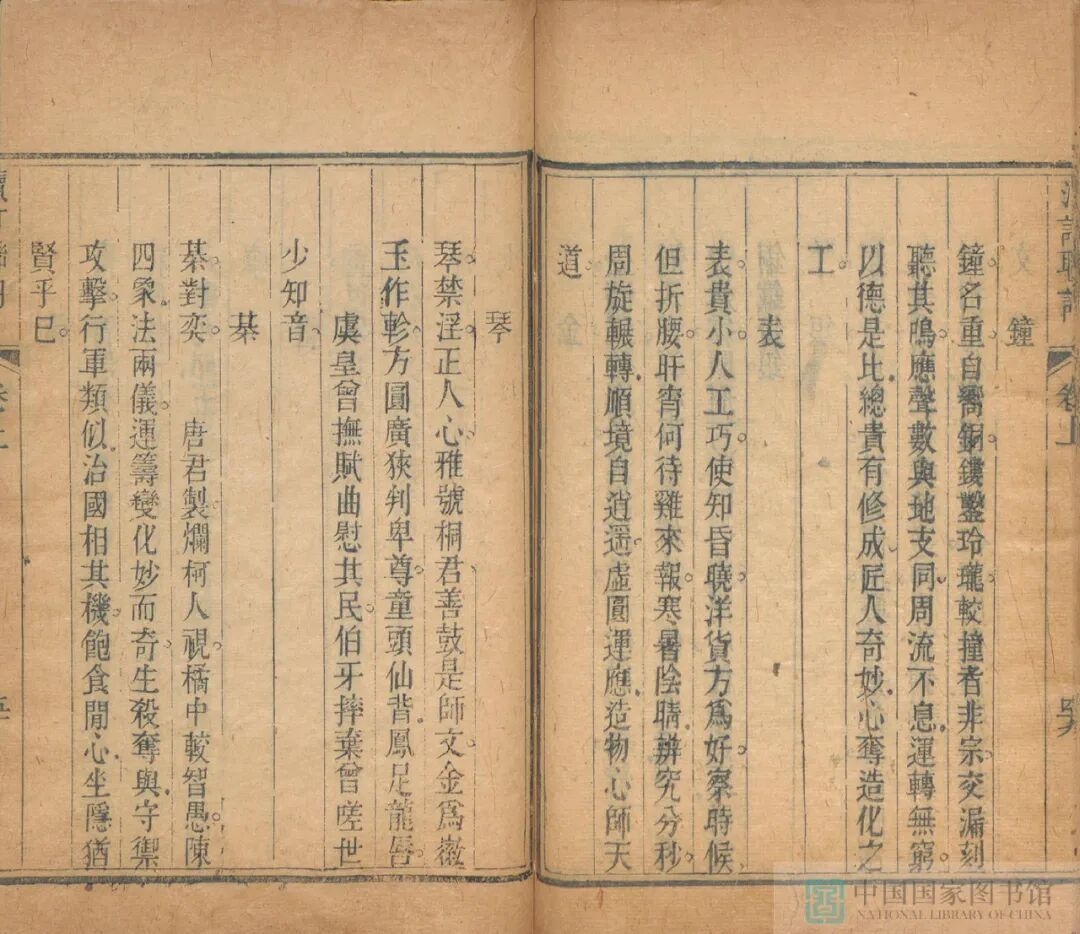 卷上
鐘
鐘名重自嚮銅鏤鑿玲瓏較撞者非宗交漏刻
聽其鳴應聲數與地支同周流不息運轉無窮
以德是比總貴有修成匠人奇妙心奪造化之
工
表
表貴小人工巧使知昏曉洋貨方為好察時候
但折腰旰宵何待雞來報寒暑陰晴辨究分秒
周旋輾轉順境自逍遥虛圓運應造物心師天
道
琴
琴禁淫正人心雅號桐君善鼓是師文金為徽
玉作軫方圓廣狹判卑尊童頭仙背鳳足龍唇
虞皇曾撫賦曲慰其民伯牙摔棄曾嗟世
少知音
棊
棊對奕唐君製爛柯人視橘中較智愚陳
四象法兩儀運籌變化妙而奇生殺奪與守禦
攻擊行軍類似治國相其機飽食閒心坐隱猶
賢乎已
中国国家图书馆
NATIONAL LIBRARY OF CHINA